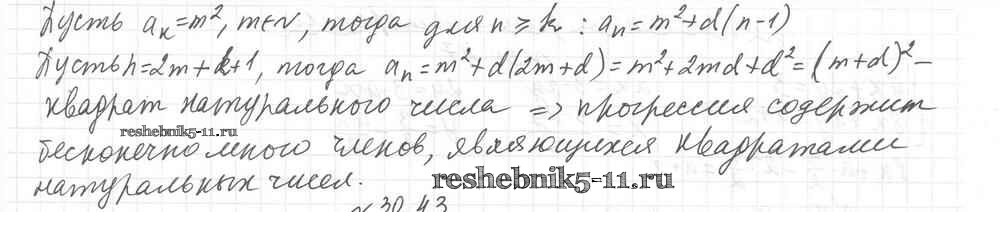 Пусть aₖ=m², m∈N, тогда для n ⩾ k : aₙ=m²+d(n-1)
Пусть n=2m+k+1, тогда aₙ=m²+d(2m+d)=m²+2md+d²=(m+d)²–
квадрат натурального числа => прогрессия содержит
reshebnik5-11.ru
бесконечно много членов, являющихся квадратами
натуральных чисел.
reshebnik5-11.ru
№30.43